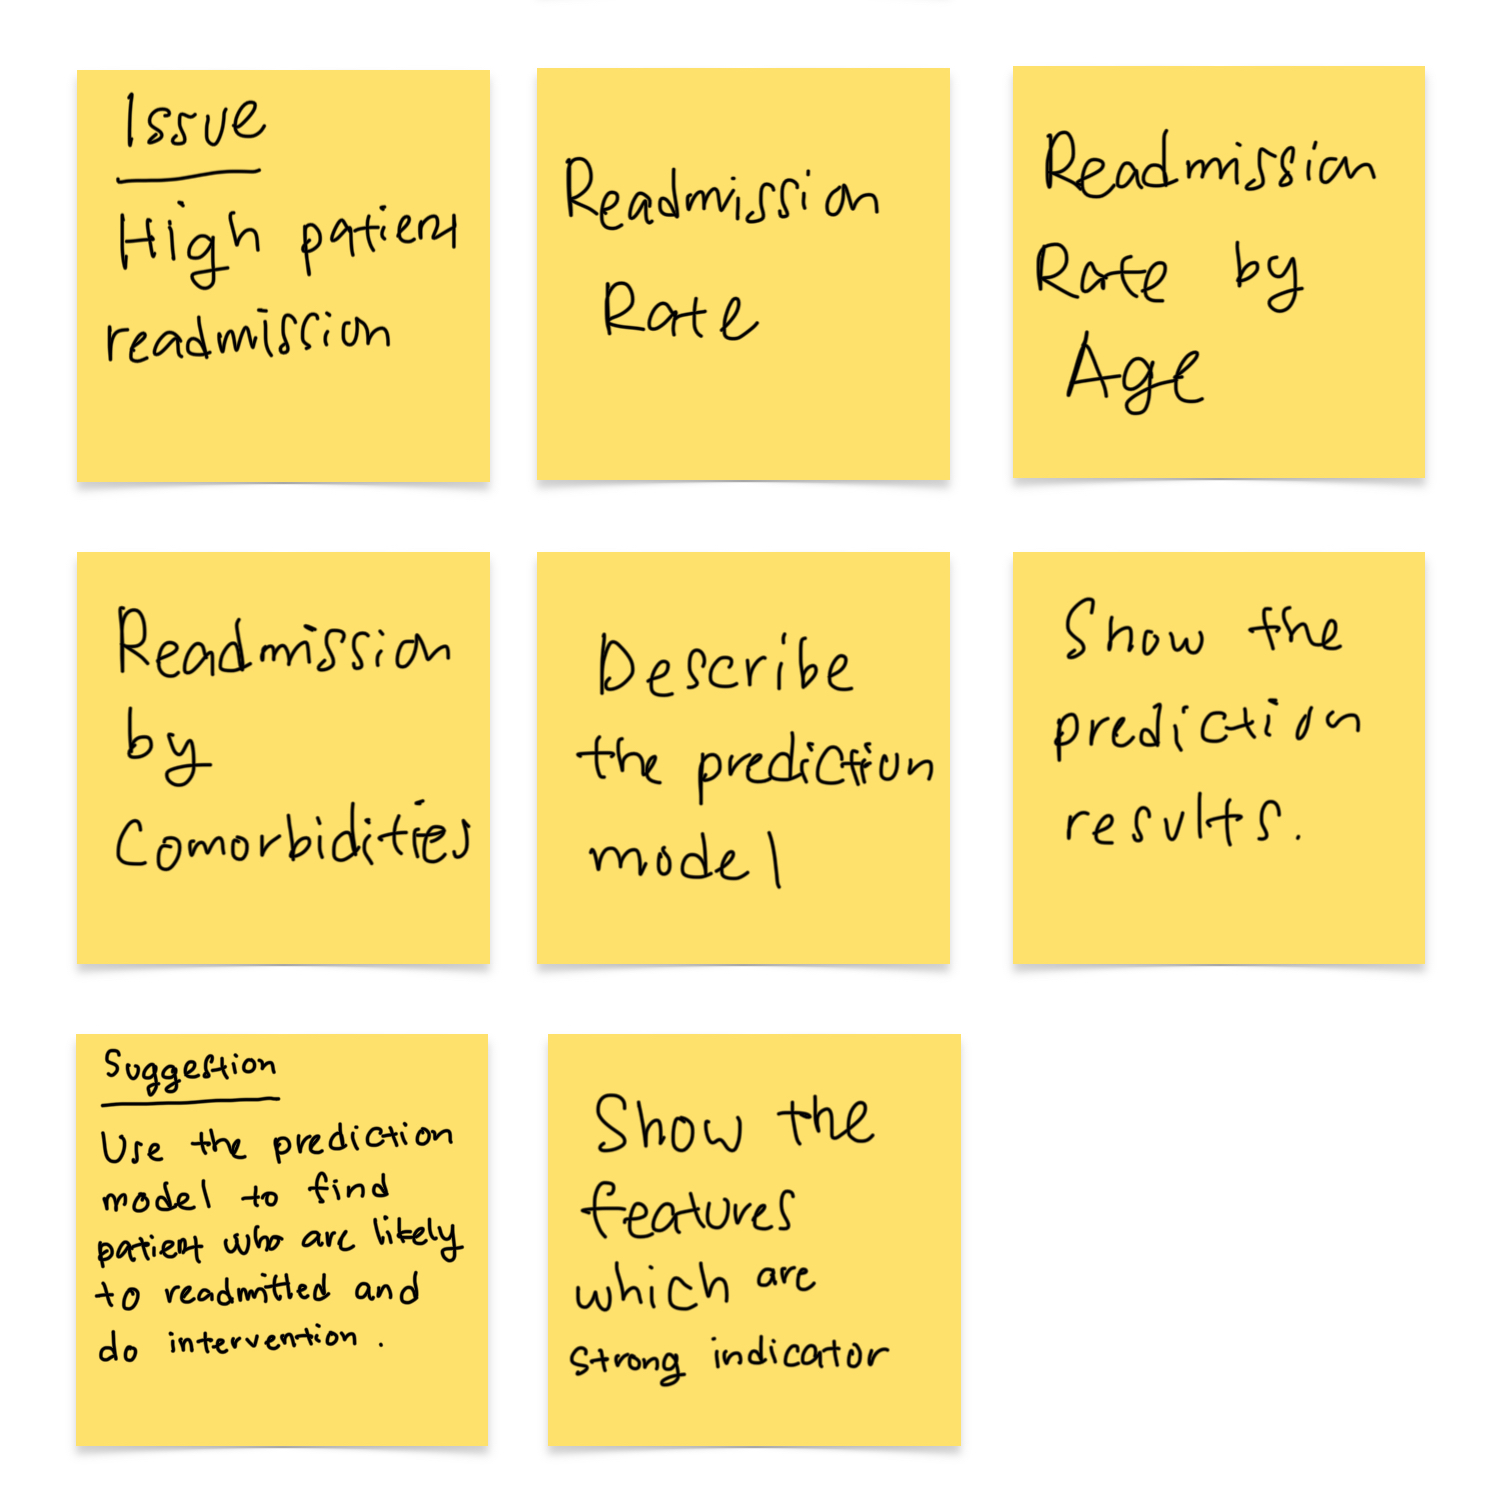 Issue
High patient
readmission
Readmission
Rate
Readmission
Rate by
Age
Readmission
by
Comorbidities
Describe
the prediction
model
Show the
prediction
results.
Suggestion
Use the prediction
model to find
patient who are likely
to readmitted and
do intervention.
Show the
features
which are
strong indicator